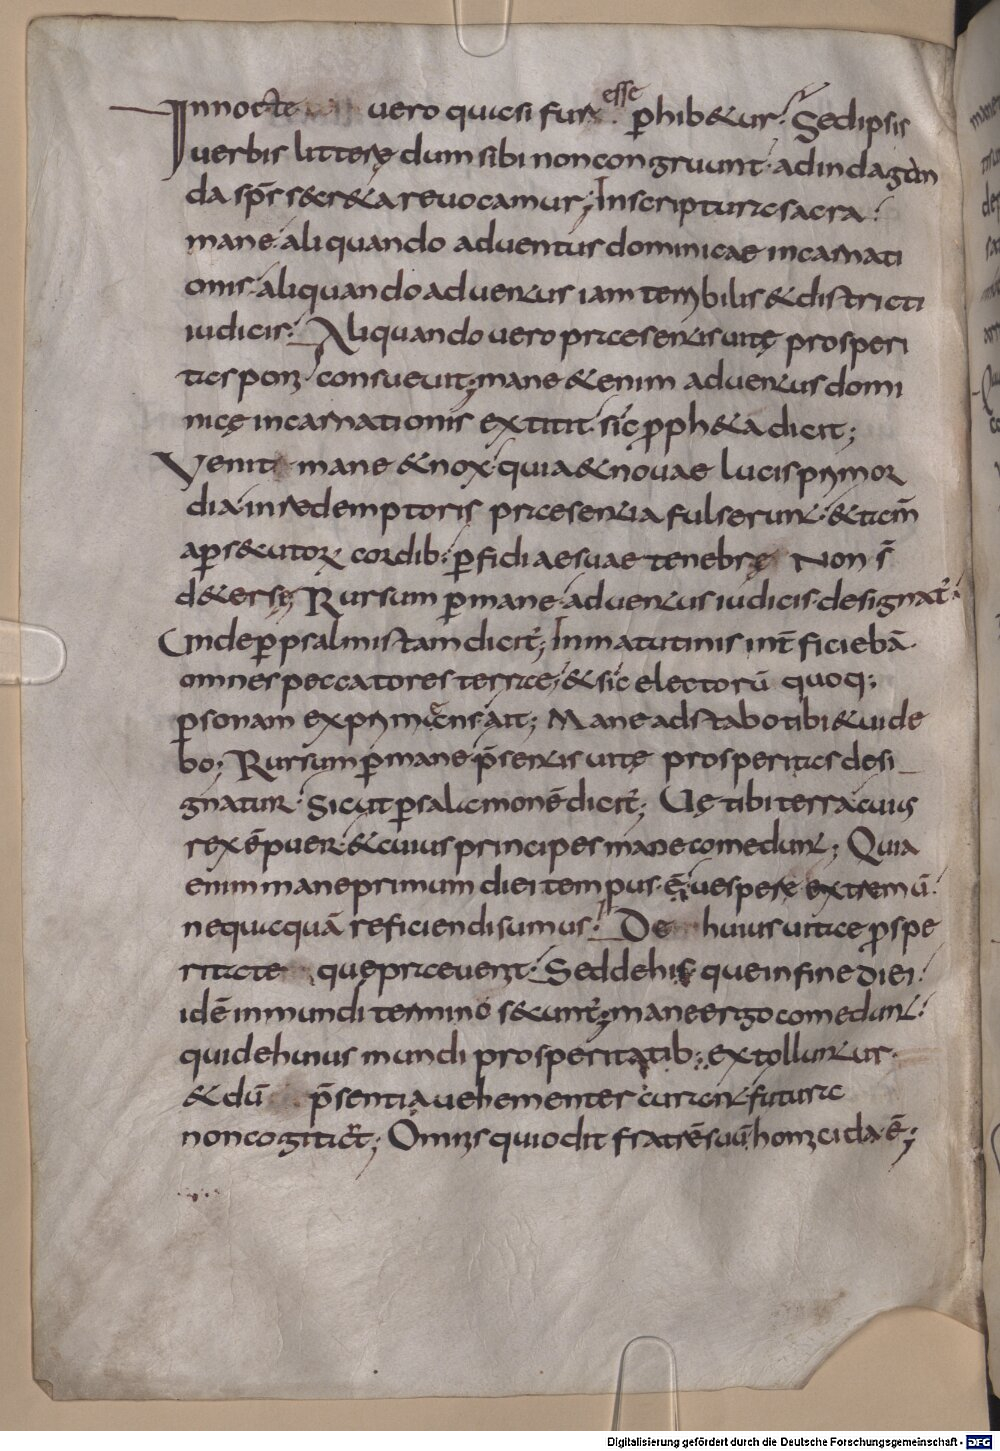 In nocte uero quasi fur esse ꝑhib&ur. Sed ipsis
uerbis litterę dum sibi non congruunt. ad indagan
da sp̄s s&cr&a reuocamur; In scripturae sacra.
mane. aliquando aduentus dominicae incarnati
onis. aliquando aduentus iam terribilis & districti
iudicis. Aliquando uero praesentis uitę prosperi
tas poni consueuit; mane &enim aduentus domi
nicę incarnationis extitit. sic ꝓph&a dicit;
Venit mane & nox. quia & nouae lucis primor
dia. in redemptoris praesentia fulserunt. & tam̄
a ꝑs&utoꝝ cordib; ꝑfidiae suae tenebrę Non s̄
d&ersę Rursum ꝑ mane. aduentus iudicis. designat᷑.
Unde ꝑ psalmistam dicit᷑; In matutinis int̄ficiebā
omnes peccatores terrae; & sic electorū quoq;
ꝑsonam exprimens. ait; Mane adstabo tibi & uide
bo; Rursum ꝑ mane p̄sentis uitę prosperitas desi
gnatur. Sicut ꝑ salemonē dicit᷑; Uę tibi terra cuius
rex ē puer. & cuius principes mane comedunt; Quia
enim mane primum diei tempus. ē, uespere extremū.
nequaquā reficiendi sumus. De huius uitae ꝓspe
ritate quę praeuenit. Sed de his. que in fine diei.
id ē in mundi termino s&unt᷑; mane ergo comedunt.
qui de huius mundi prosperitatib; extolluntur.
& dū p̄sentia uehementer curant. futura
non cogitant; Omnis qui odit fratrē suū. homicida ē;
Digitalisierung gefördert durch die Deutsche Forschungsgemeinschaft - DFG